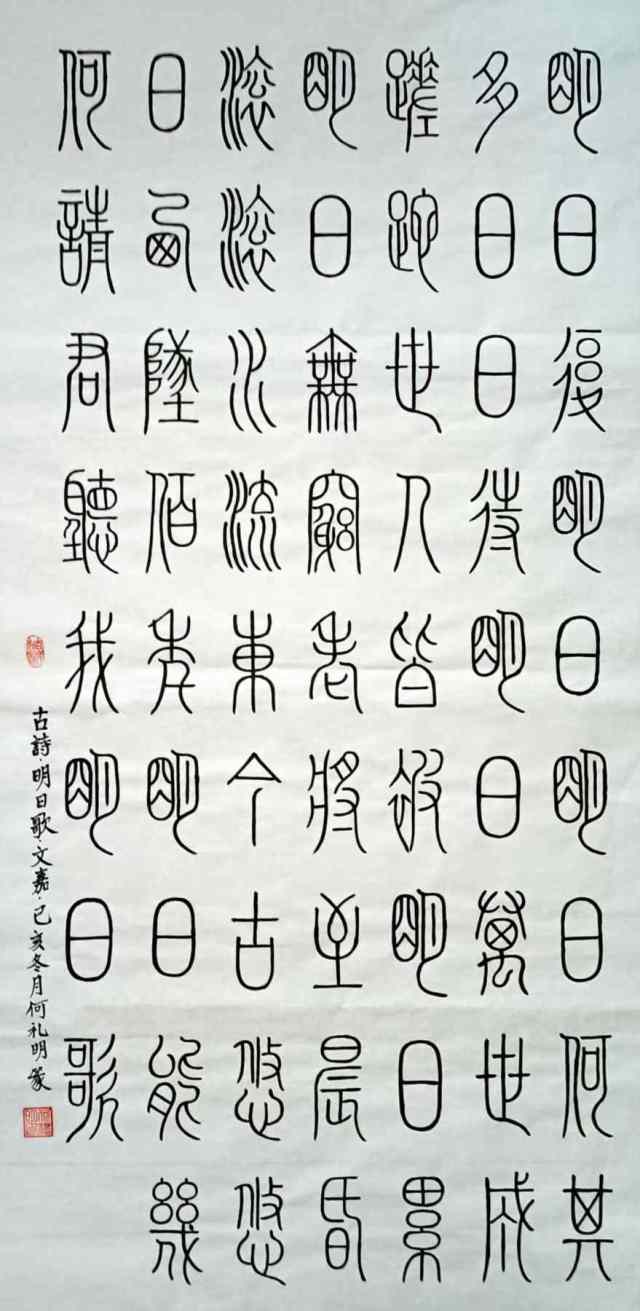 明日復明日明日何其
多日日待明日萬世成
蹉跎世人皆被明日累
明日無窮老將至晨昏
滚滚水流東今古悠悠
日西墜佰年明日能幾
何請君聽我明日歌
古詩·明日歌·文嘉·己亥冬月何礼明篆